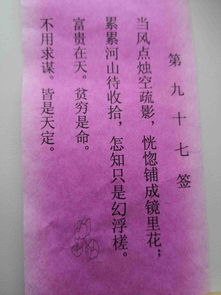 第九十七签
当风点烛空疏影，恍惚铺成镜里花；
累累河山待收拾，怎知只是幻浮槎。
富贵在天。贫穷是命。
不用求谋。皆是天定。